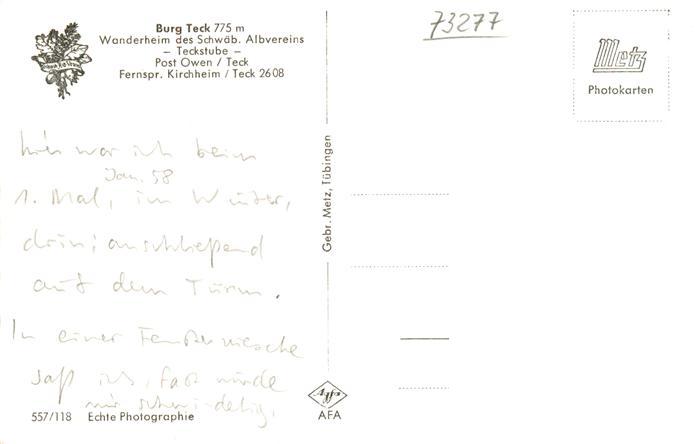 Burg Teck 775 m
Wanderheim des Schwäb. Albvereins
– Teckstube –
Post Owen / Teck
Fernspr. Kirchheim / Teck 2608
73277
Metz
Photokarten
hier war ich beim
Jan. 58
1. Mal, im Winter,
drin; anschließend
auf dem Turm.
In einer Fensternische
saß ich, fast würde
mir schwindelig.
Gebr. Metz, Tübingen
Agfa
AFA
557/118 Echte Photographie